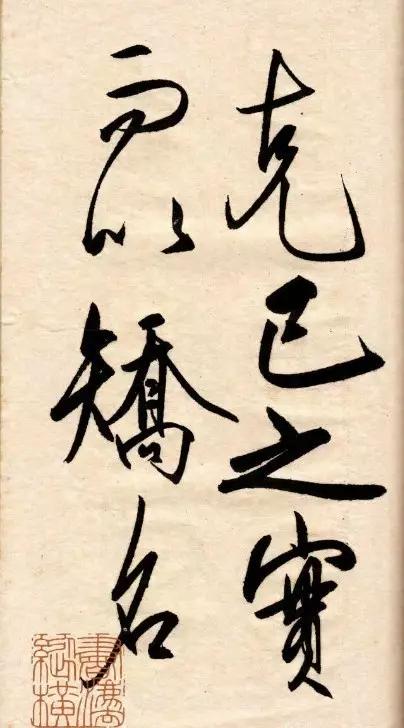 克己之實
而以矯名